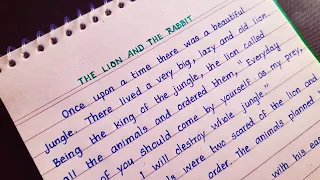 THE LION AND THE RABBIT
Once upon a time there was a beautiful
jungle. There lived a very big, lazy and old lion.
Being the king of the jungle, the lion called
all the animals and ordered them, "Everyday
of you should come by yourself as my prey,
I will destroy whole jungle."
ls were two scared of the lion and
order. the animals planned
with his eas